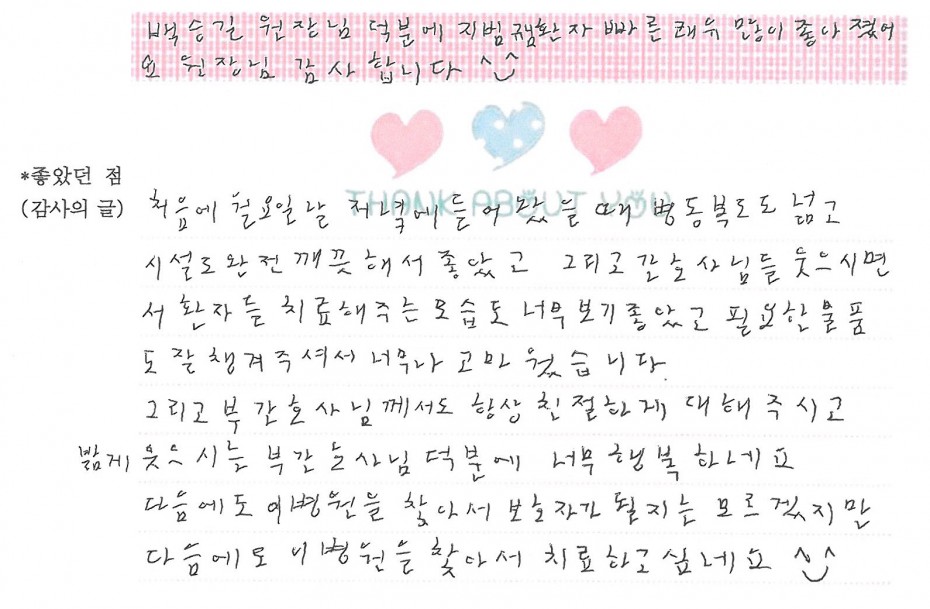 백승길 원장님 덕분에 지범 환자 빠른 쾌유 많이 좋아졌어
요 원장님 감사합니다 ^^
THANK ABOUT YOU
*좋았던 점
(감사의 글)
처음에 월요일날 저녁에 들어왔을 때 병동복도도 넓고
시설도 완전 깨끗해서 좋았고 그리고 간호사님들 웃으시면
서 환자들 치료해주는 모습도 너무 보기좋았고 필요한 물품
도 잘 챙겨주셔서 너무나 고마웠습니다.
그리고 부간호사님께서도 항상 친절하게 대해주시고
밝게 웃으시는 부간호사님 덕분에 너무 행복하네요
다음에도 이병원을 찾아서 보호자가 될지는 모르겠지만
다음에도 이병원을 찾아서 치료하고 싶네요 ^^